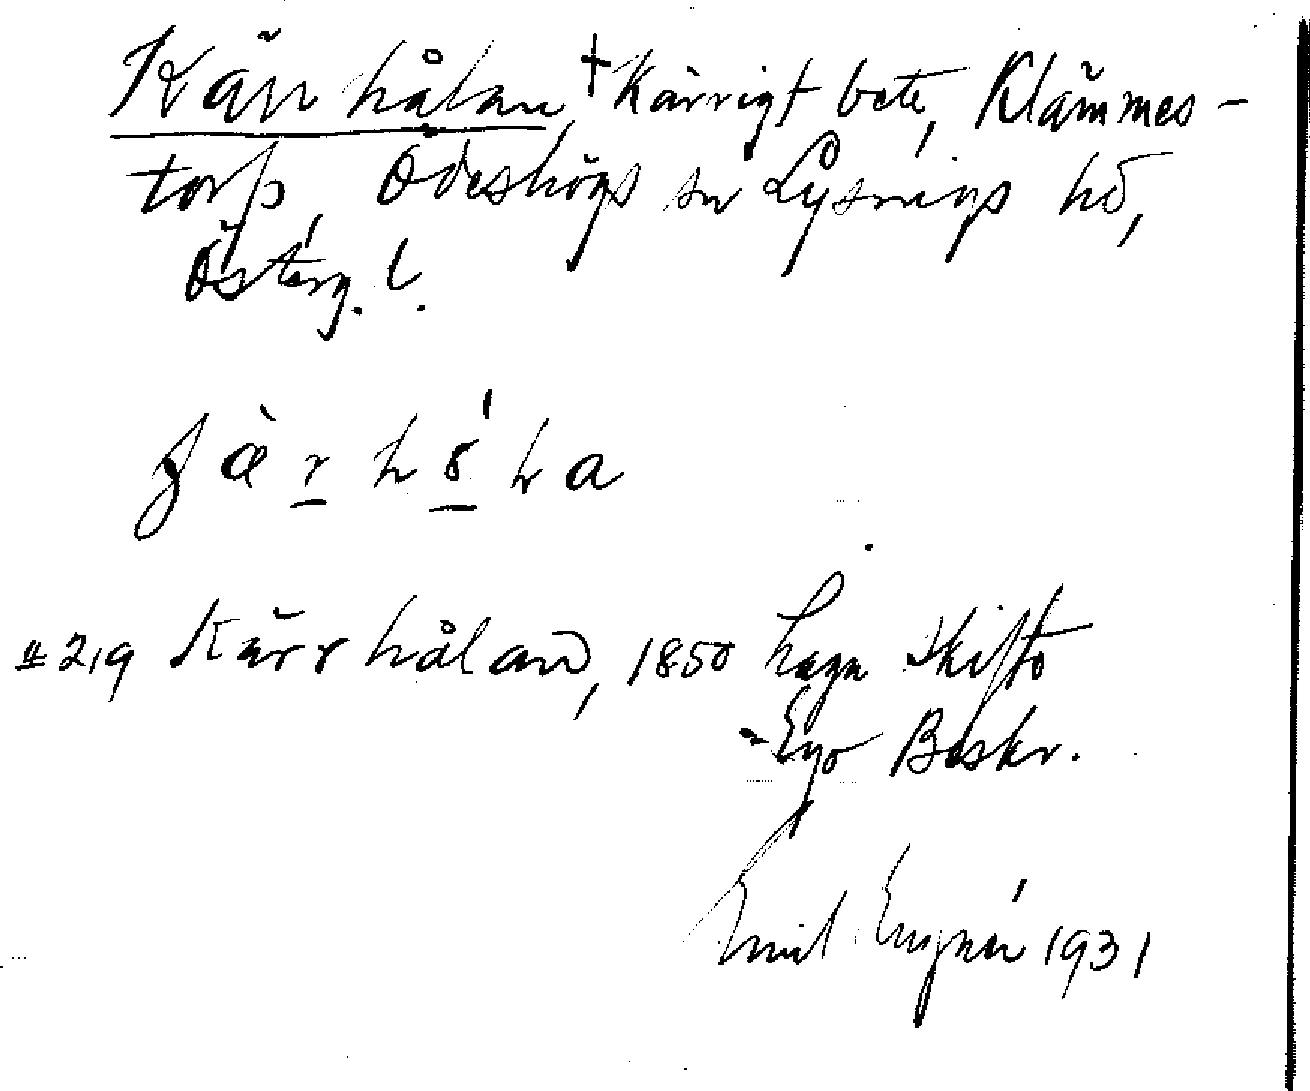 Kärrhålan, † Kärrigt bete, Klämmes-
torp, Ödeshögs sn Lysings hd,
Österg. l.
#219 Kärrhålan, 1850 Laga Skifte
Ego Beskr.
Emil 1931